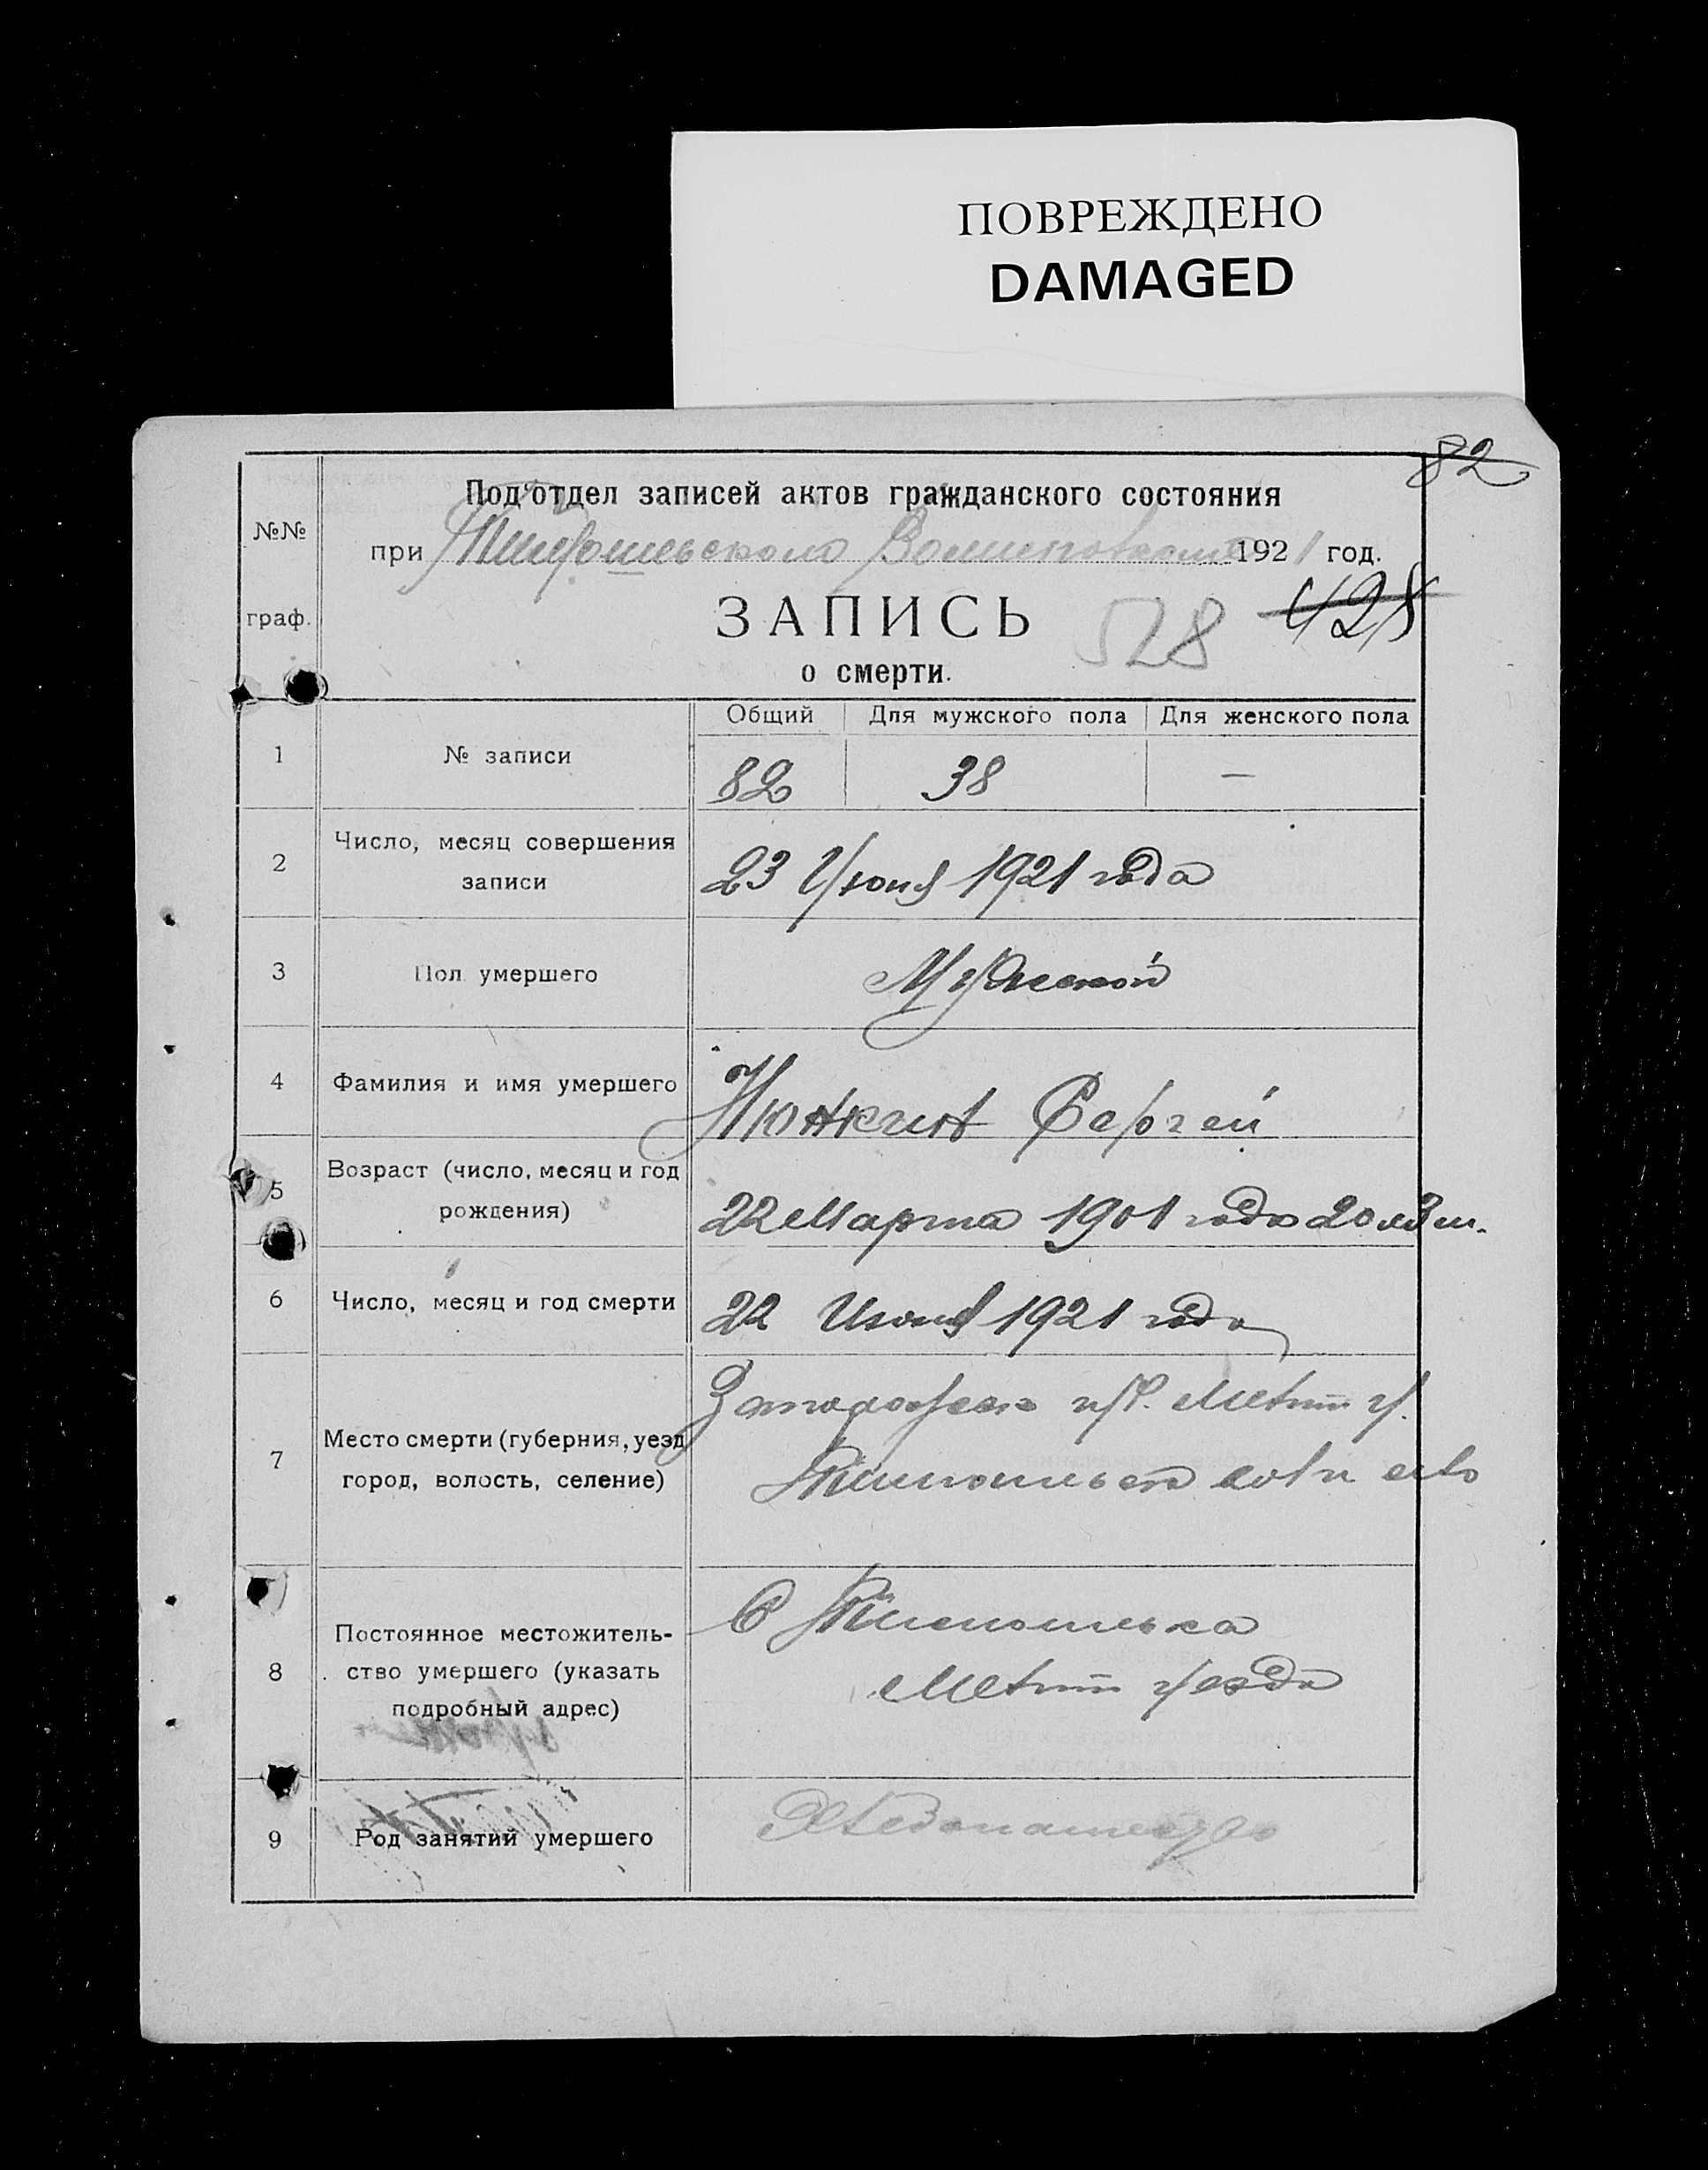 ПОВРЕЖДЕНО
DAMAGED
82
Подотдел записей актов гражданского состояния
№№
при 1921 год.
граф.
ЗАПИСЬ 528 428
о смерти.
Общий Для мужского пола Для женского пола
1 № записи 82 38 —
2 Число, месяц совершения
записи 23 Июня 1921 года
3 Пол умершего Мужской
4 Фамилия и имя умершего Сергей
5 Возраст (число, месяц и год
рождения) 22 Марта 1901 года 20 лет.
6 Число, месяц и год смерти 22 Июня 1921 года
7 Место смерти (губерния, уезд
город, волость, селение)
8 Постоянное местожитель-
ство умершего (указать
подробный адрес) уезда
9 Род занятий умершего Хлебопашество